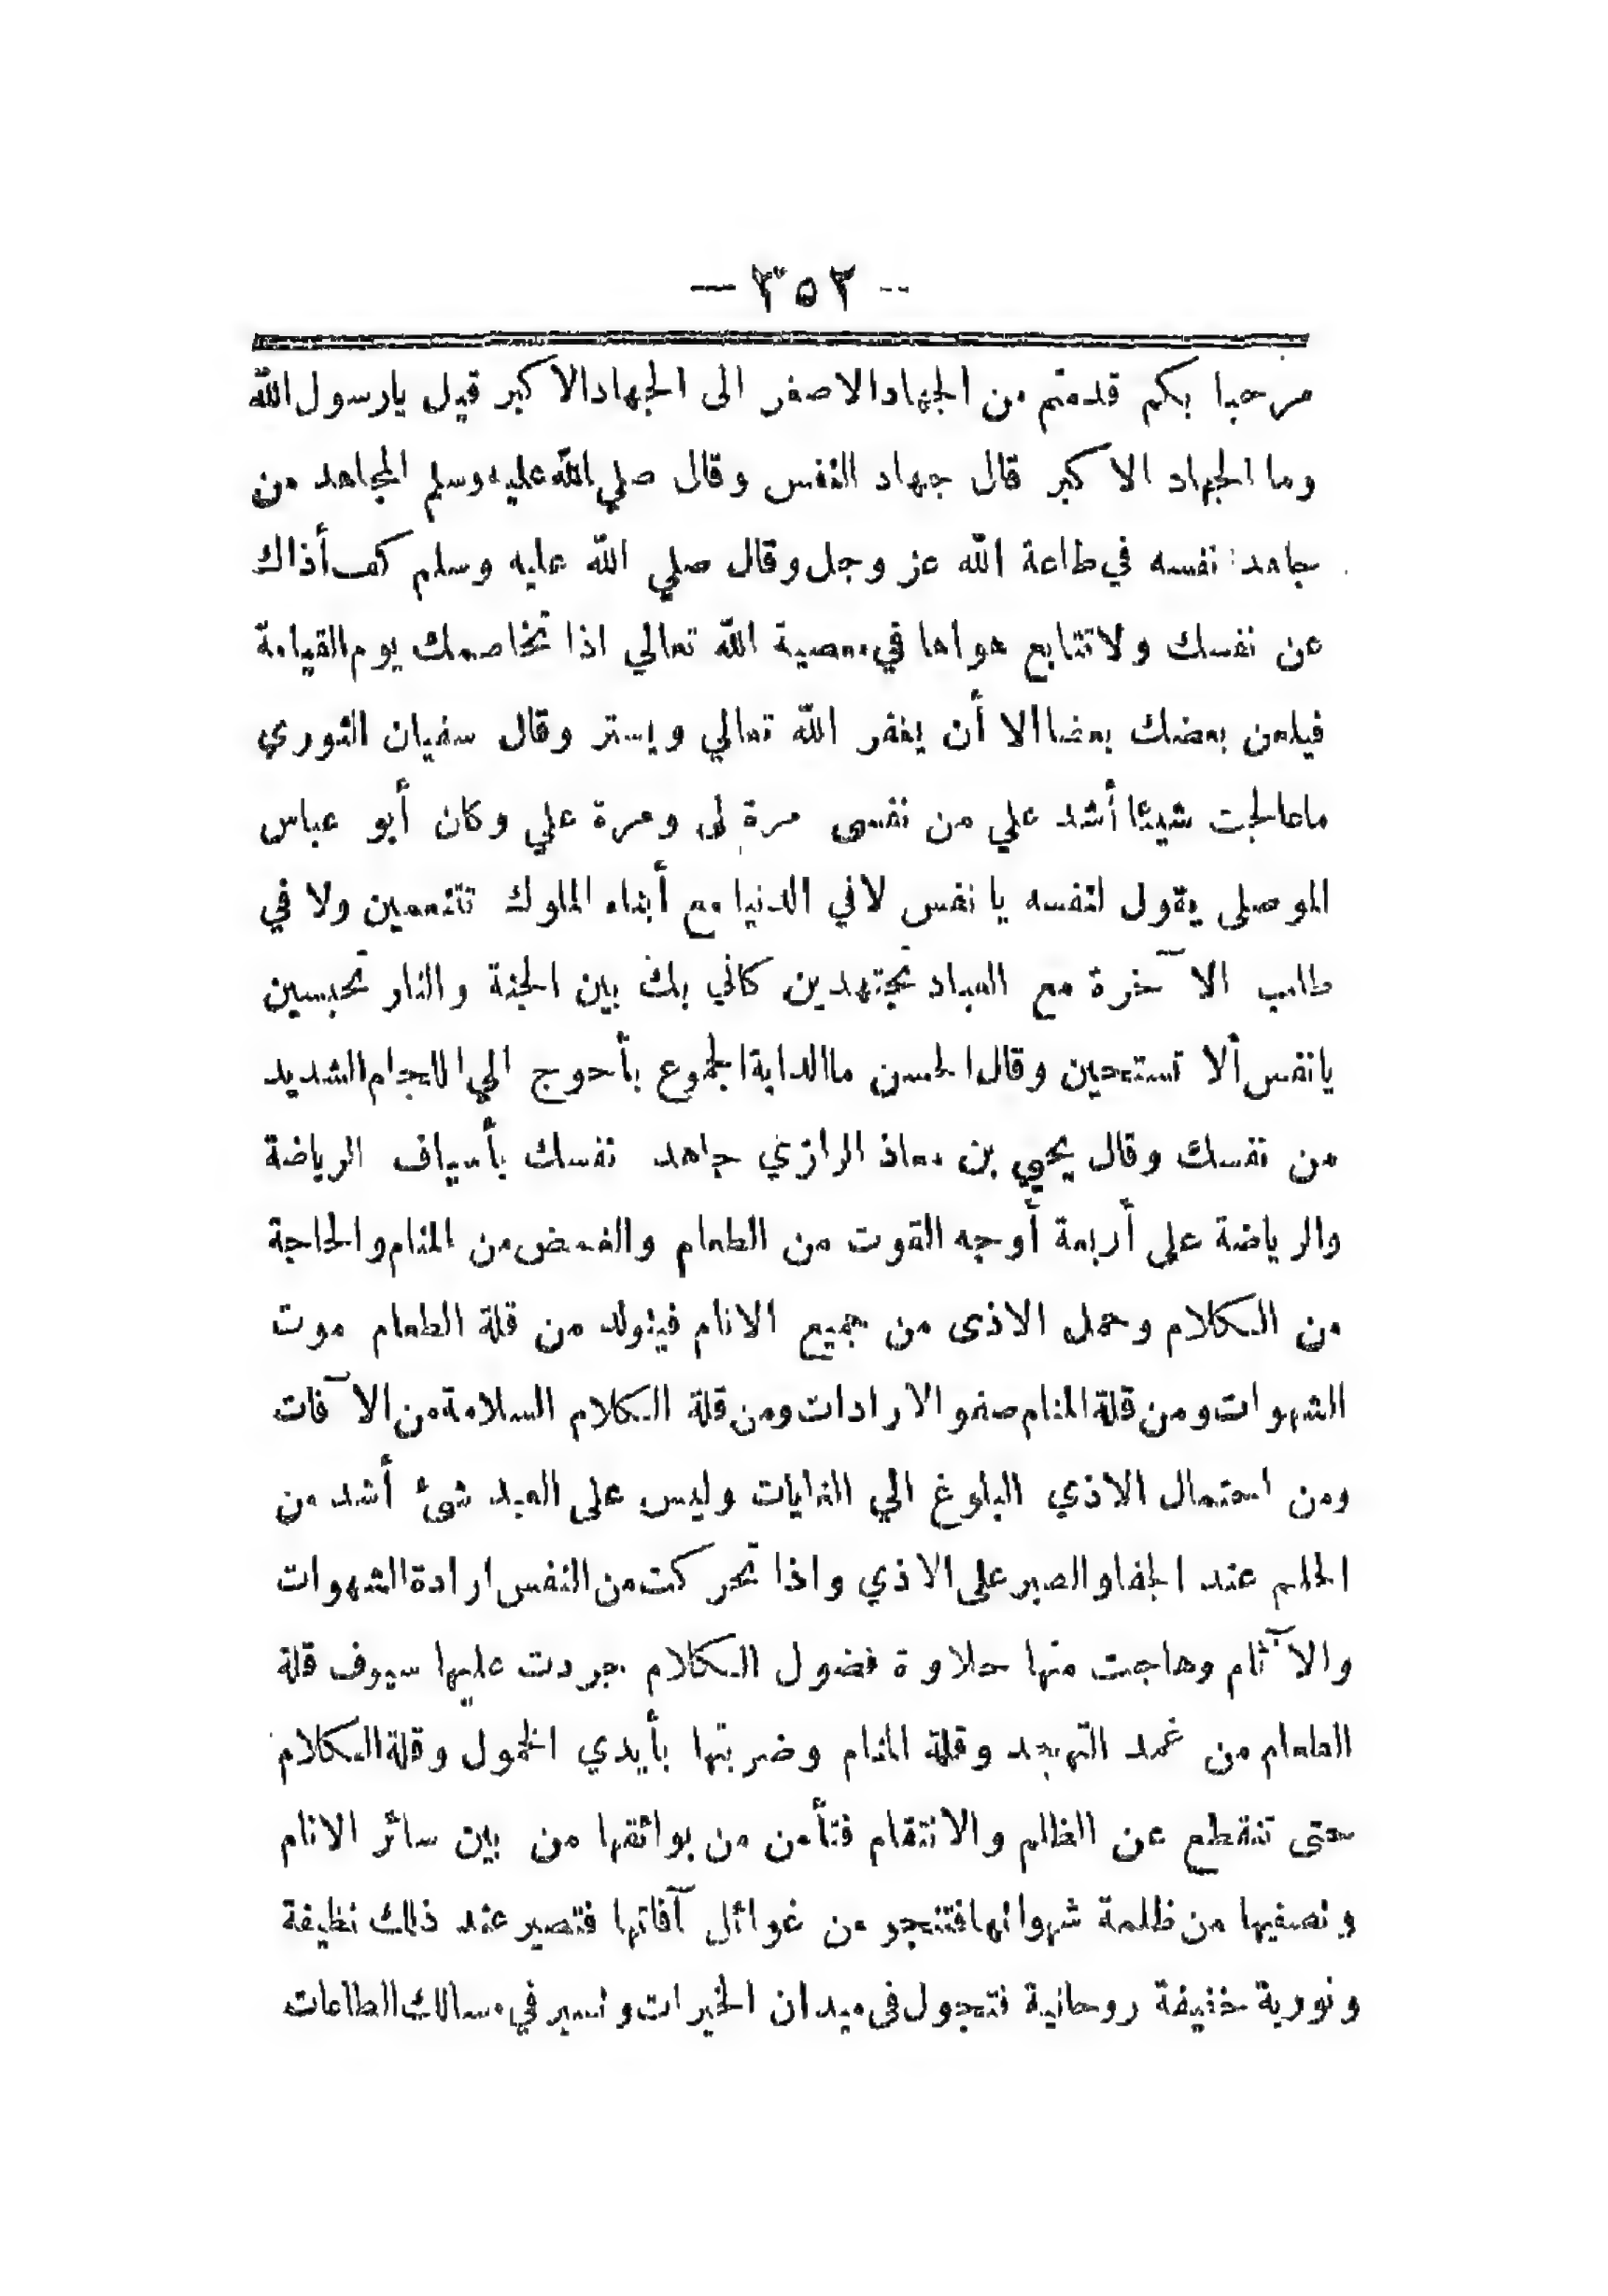 — ٣٥٢ —
مرحبا بكم قدمتم من الجهاد الاصغر الى الجهاد الاكبر قيل يارسول الله
وما الجهاد الاكبر قال جهاد النفس وقال صلي الله عليه وسلم المجاهد من
جاهد نفسه في طاعة الله عز وجل وقال صلي الله عليه وسلم كف أذاك
عن نفسك ولا تتابع هواها في معصية الله تعالي اذا تخاصمك يوم القيامة
فيلعن بعضك بعضا الا أن يغفر الله تعالي ويستر وقال سفيان الثوري
ماعالجت شيئا أشد علي من نفسى مرة لى ومرة علي وكان أبو عباس
الموصلى يقول لنفسه يا نفس لا في الدنيا مع أبناء الملوك تتنعمين ولا في
طلب الآخرة مع العباد تجتهدين كاني بك بين الجنة والنار تحبسين
يانفس ألا تستحين وقال الحسن ما الدابة الجموع بأحوج الي اللجام الشديد
من نفسك وقال يحيي بن معاذ الرازي جاهد نفسك بأسياف الرياضة
والرياضة على أربعة أوجه القوت من الطعام والغمض من المنام والحاجة
من الكلام وحمل الاذى من جميع الانام فيتولد من قلة الطعام موت
الشهوات ومن قلة المنام صفو الارادات ومن قلة الكلام السلامة من الآفات
ومن احتمال الاذي البلوغ الي الغايات وليس على العبد شئ أشد من
الحلم عند الجفا والصبر على الاذي واذا تحركت من النفس ارادة الشهوات
والآثام وهاجت منها حلاوة فضول الكلام جردت عليها سيوف قلة
الطعام من غمد التهجد وقلة المنام وضربتها بأيدي الخمول وقلة الكلام
حتى تنقطع عن الظلم والانتقام فتأمن من بوائقها من بين سائر الانام
ونصفيها من ظلمة شهواتها فتنجو من غوائل آفاتها فتصير عند ذلك نظيفة
ونورية خفيفة روحانية فتجول فى ميدان الخيرات وتسير في مسالك الطاعات